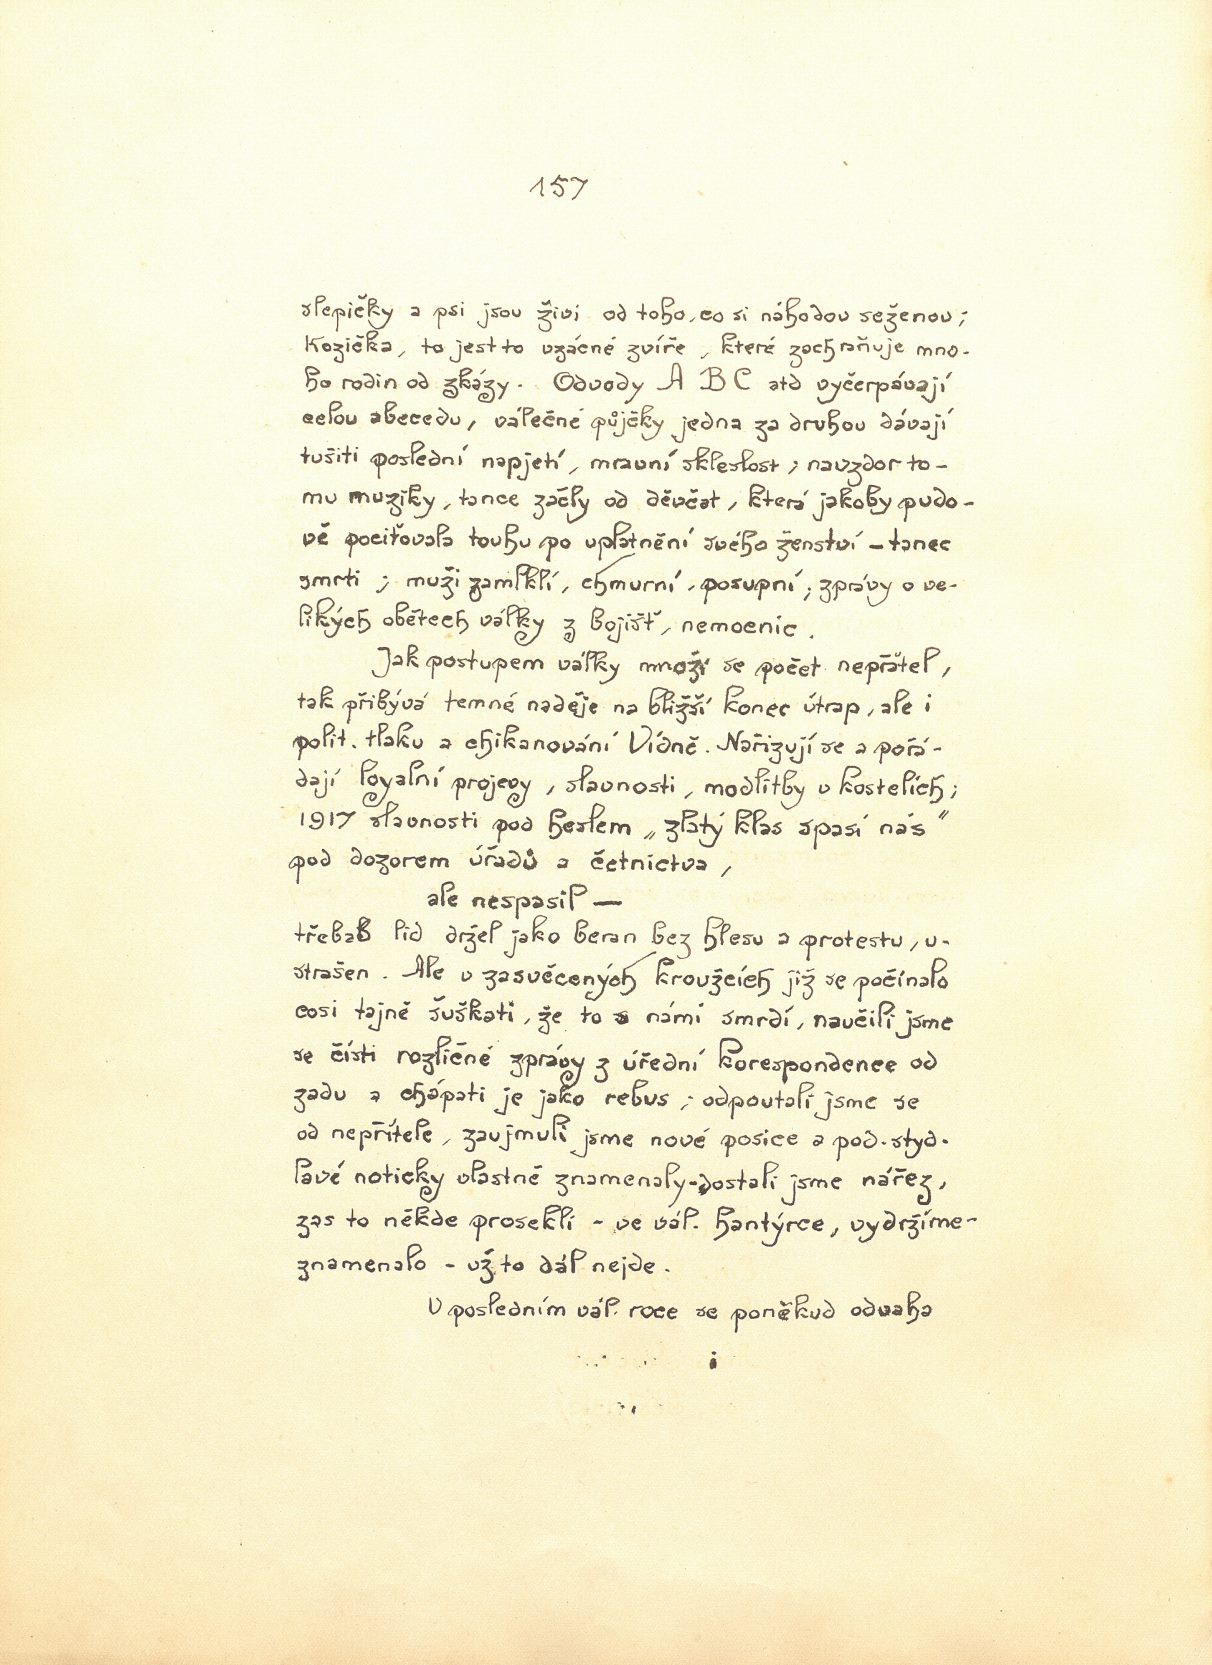 157
slepičky a psi jsou živi od toho, co si náhodou seženou;
Kozička, to jest to vzácné zvíře, které zachraňuje mno-
ho rodin od zkázy. Odvody A B C atd vyčerpávají
celou abecedu, válečné půjčky jedna za druhou dávají
tušiti poslední napjetí, mravní skleslost; navzdor to-
mu muziky, tance začly od děvčat, která jakoby pudo-
vě pociťovala touhu po uplatnění svého ženství – tanec
smrti; muži zamlklí, chmurní, posupní; zprávy o ve-
likých obětech války z bojišť, nemocnic.
Jak postupem války množí se počet nepřátel,
tak přibývá temné naděje na bližší konec útrap, ale i
polit. tlaku a chikanování Vídně. Nařizují se a pořá-
dají loyalní projevy, slavnosti, modlitby v kostelích;
1917 slavnosti pod heslem „zlatý klas spasí nás"
pod dozorem úřadů a četnictva,
ale nespasil —
třebas lid držel jako beran bez hlesu a protestu, u-
strašen. Ale v zasvěcených kroužcích již se počínalo
cosi tajně šuškati, že to s námi smrdí, naučili jsme
se čísti rozličné zprávy z úřední korespondence od
zadu a chápati je jako rebus; odpoutali jsme se
od nepřítele, zaujmuli jsme nové posice a pod. styd-
lavé noticky vlastně znamenaly - dostali jsme nářez,
zas to někde prosekli - ve vál. hantýrce, vydržíme -
znamenalo - už to dál nejde.
V posledním vál. roce se poněkud odvaha